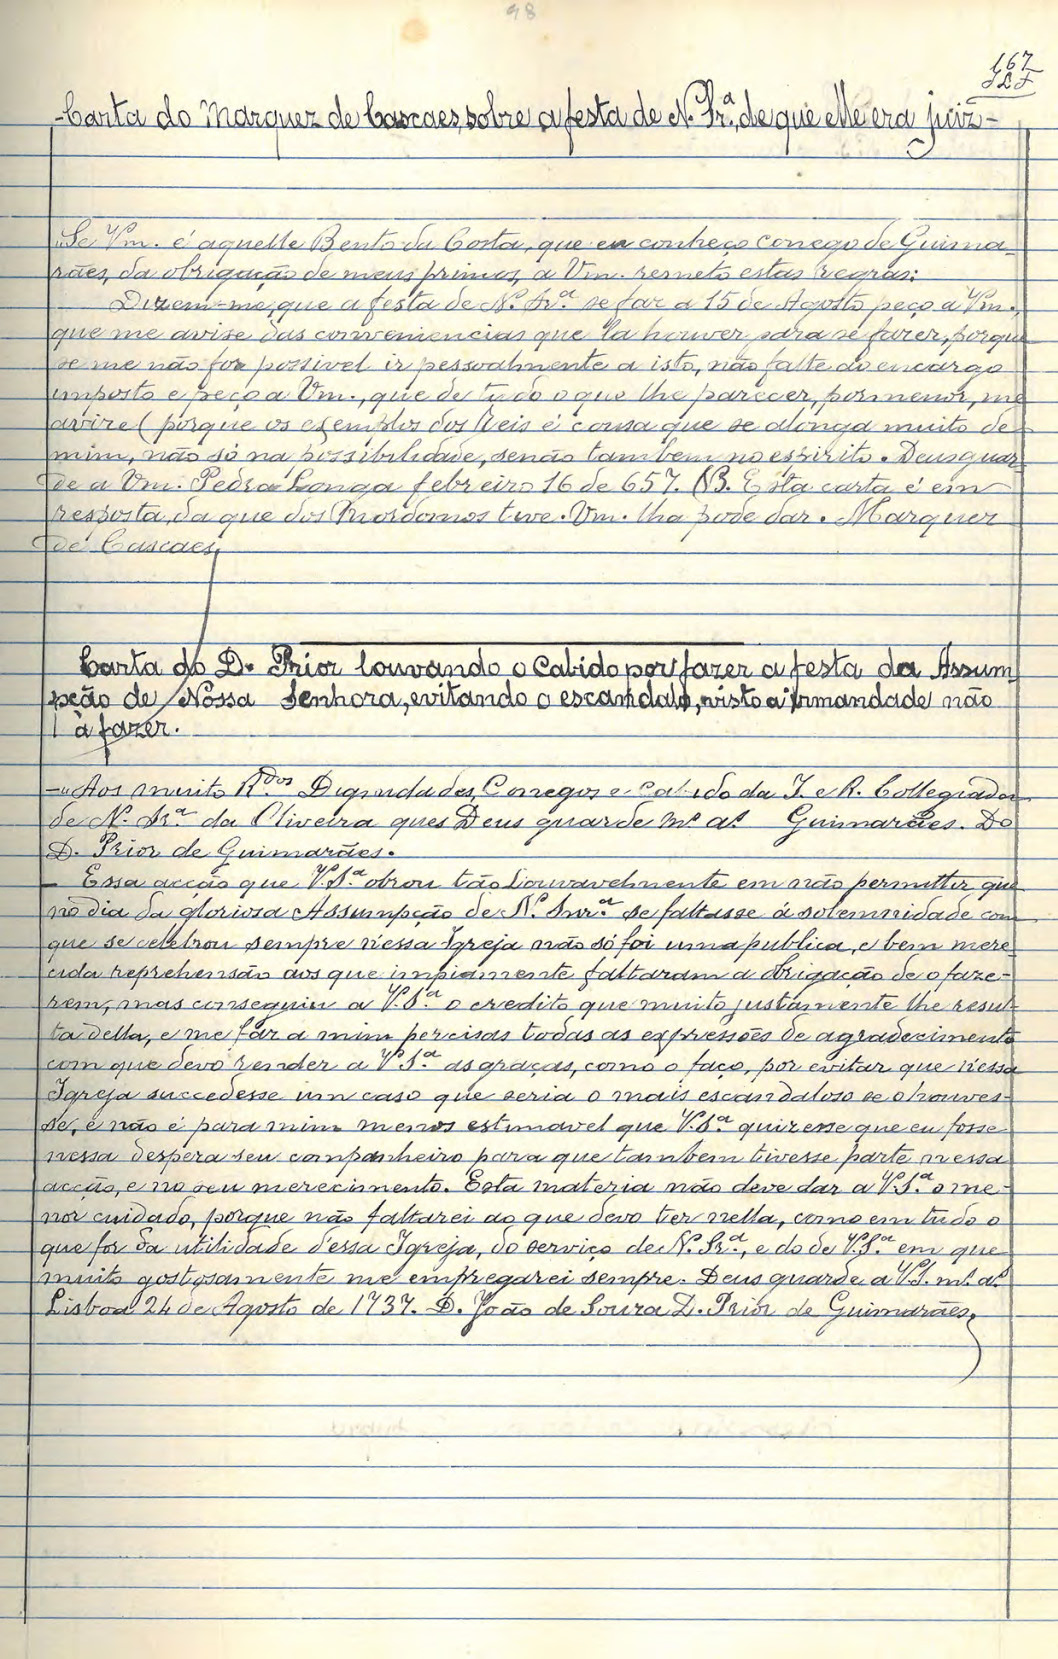 98
167
- Carta do Marquez de Cascaes, sobre a festa de N. Sr.ª, de que elle era juiz -
"Se Vm. é aquelle Bento da Costa, que eu conheço conego de Guima-
rães, da obrigação de meus primos, a Vm. remeto estas regras:
Dizem-me, que a festa de N.ª Sr.ª se faz a 15 de Agosto peço a Vm.,
que me avise das conveniencias que la houver para se fazer, porque
se me não for possivel ir pessoalmente a isto, não falte ao encargo
imposto e peço a Vm., que de tudo o que lhe parecer, pormenor, me
avize (porque os exemplos dos Reis é cousa que se alonga muito de
mim, não só na possibilidade, senão tambem no espirito. Deus guar-
de a Vm. Pedra Longa febreiro 16 de 657. (B. Esta carta é em
resposta, da que dos Mordomos tive. Vm. lha pode dar. Marquez
de Cascaes,
Carta do D. Prior louvando o Cabido por fazer a festa da Assum
pção de Nossa Senhora, evitando o escandalo, visto a irmandade não
a fazer.
-"Aos muito R.dos Dignidades, Conegos e Cabido da I. e R. Collegiada
de N. Sr.ª da Oliveira que Deus guarde m.s a.s Guimarães. Do
D. Prior de Guimarães.
- Essa acção que V.S.ª obrou tão louvavelmente em não permittir que
no dia da gloriosa Assumpção de N. Snr.ª se faltasse á solemnidade com
que se celebrou sempre nessa Igreja não só foi uma publica, e bem mere
cida reprehensão aos que impiamente faltaram a obrigação de o faze-
rem, mas conseguiu a V.S.ª o credito que muito justamente lhe resul-
ta della, e me faz a mim percisas todas as expressões de agradecimento
com que devo render a V.S.ª as graças, como o faço, por evitar que nessa
Igreja succedesse um caso que seria o mais escandaloso se o houves-
se, e não é para mim menos estimavel que V.S.ª quizesse que eu fosse
nessa despera seu companheiro para que tambem tivesse parte nessa
acção, e no seu merecimento. Esta materia não deve dar a V.S.ª o me-
nor cuidado, porque não faltarei ao que devo ter nella, como em tudo o
que for da utilidade d'essa Igreja, do serviço de N. Sr.ª, e do de V.S.ª em que
muito gostosamente me empregarei sempre. Deus guarde a V.S. m.s a.s
Lisboa 24 de Agosto de 1737. D. João de Souza D. Prior de Guimarães,